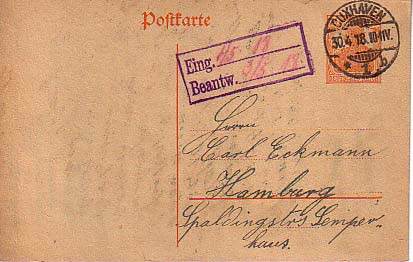 Postkarte
CUXHAVEN
30.4.18.10-11V.
* 1 b
Eing.
Beantw.
Herrn
Carl Eckmann
Hamburg
Spaldingstrs Semper-
haus.